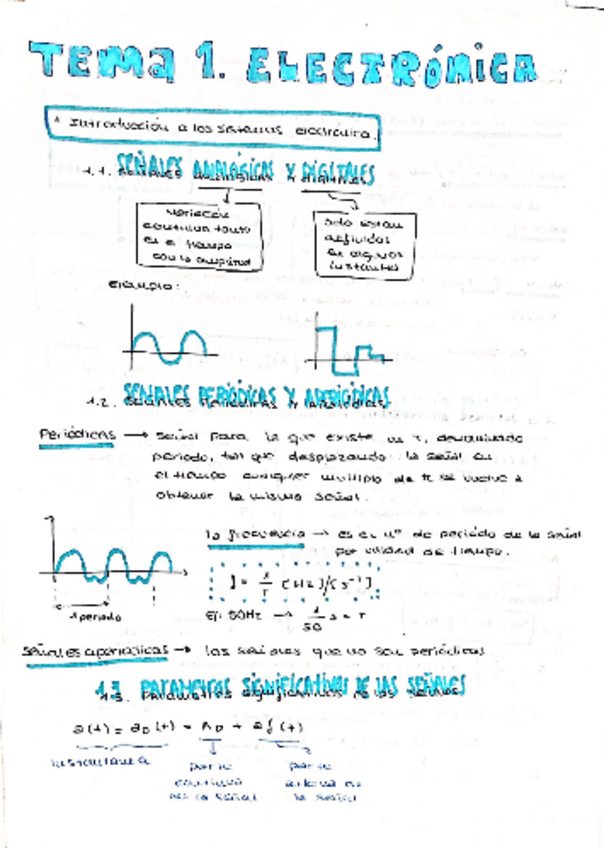 TEMA 1. ELECTRÓNICA
* Introducción a los sistemas electrónica.
1.1. SEÑALES ANALÓGICAS Y DIGITALES
variación
continua tanto
en el tiempo
con la amplitud
solo están
definidas
en algunos
instantes
ejemplo:
1.2. SEÑALES PERIÓDICAS Y APERIÓDICAS
Periódicas → señal para la que existe un T, denominado
periodo, tal que desplazando la señal en
el tiempo cualquier multiplo de T se vuelve a
obtener la misma señal.
la frecuencia → es el nº de periodo de la señal
por unidad de tiempo.
f = 1/T [Hz]/[s⁻¹]
1 periodo
ej: 50Hz → 1/50 s = T
Señales aperiodicas → las señales que no son periódicas
1.3. PARAMETROS SIGNIFICATIVOS DE LAS SEÑALES
a(t) = a_D(t) = A_D + a_f(t)
instantanea
parte
continua
de la señal
parte
alterna de
la señal